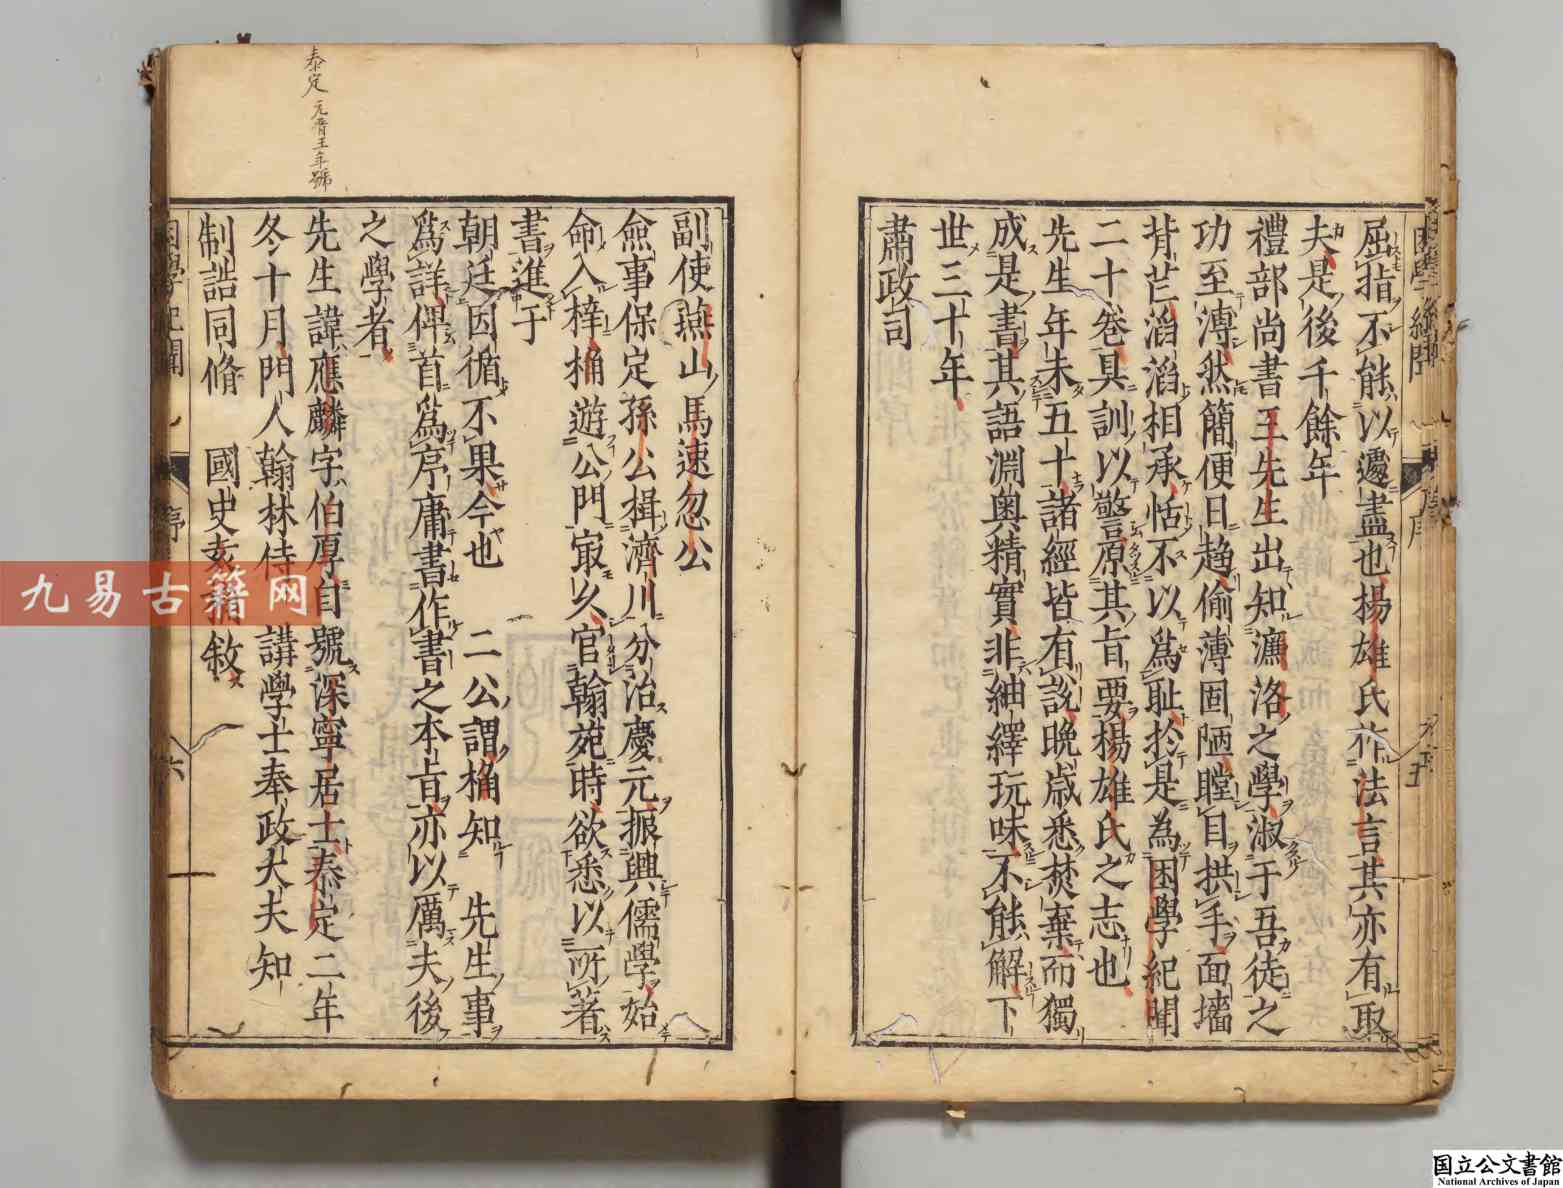 屈指不能以遽盡也揚雄氏作法言其亦有取
夫是後千餘年
禮部尚書王先生出知濂洛之學淑于吾徒之
功至溥然簡便日趨偷薄固陋瞠目拱手面墻
背芒滔滔相承恬不以爲耻於是為困學紀聞
二十卷具訓以警原其旨要揚雄氏之志也
先生年未五十諸經皆有說晚歲悉焚棄而獨
成是書其語淵奧精實非紬繹玩味不能解下
世三十年
肅政司
副使燕山馬速忽公
僉事保定孫公楫濟川分治慶元振興儒學始
命入梓桷遊公門寂乆官翰苑時欲悉以所著
書進于
朝廷因循不果今也 二公謂桷知 先生事
爲詳俾首爲序庸書作書之本旨亦以厲夫後
之學者
先生諱應麟字伯厚自號深寧居士泰定二年
冬十月門人翰林侍講學士奉政大夫知
制誥同脩 國史袁桷敘
泰定 元晋王年號
困學紀聞 序 六
九易古籍网
国立公文書館
National Archives of Japan